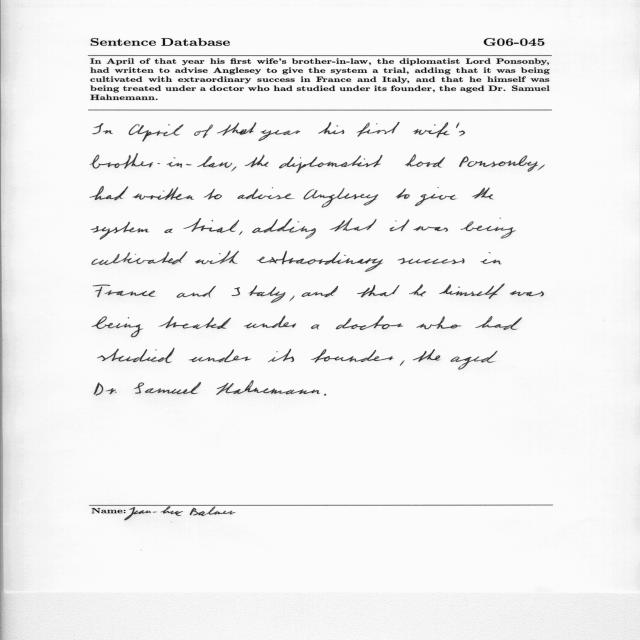 Sentence Database G06-045
In April of that year his first wife's brother-in-law, the diplomatist Lord Ponsonby,
had written to advise Anglesey to give the system a trial, adding that it was being
cultivated with extraordinary success in France and Italy, and that he himself was
being treated under a doctor who had studied under its founder, the aged Dr. Samuel
Hahnemann.
In April of that year his first wife's
brother-in-law, the diplomatist Lord Ponsonby,
had written to advise Anglesey to give the
system a trial, adding that it was being
cultivated with extraordinary success in
France and Italy, and that he himself was
being treated under a doctor who had
studied under its founder, the aged
Dr. Samuel Hahnemann.
Name: Jean-Luc Balmer